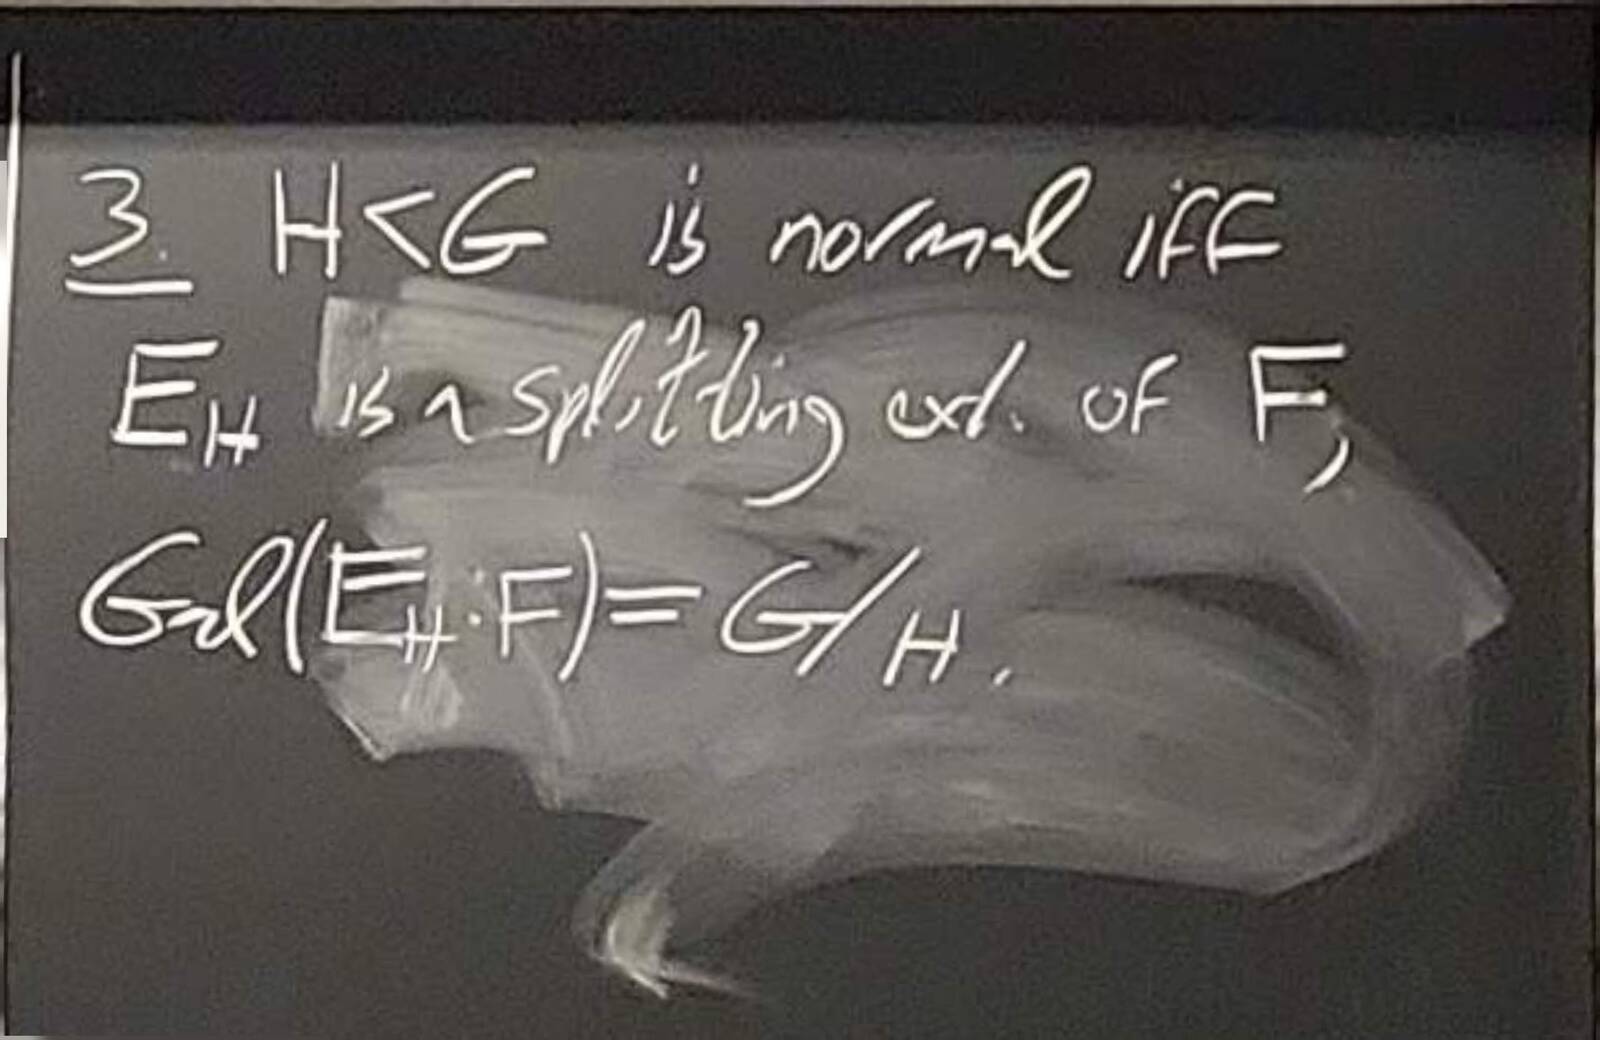 3. H<G is normal iff
E_H is a splitting ext. of F,
Gal(E_H:F)=G/H.